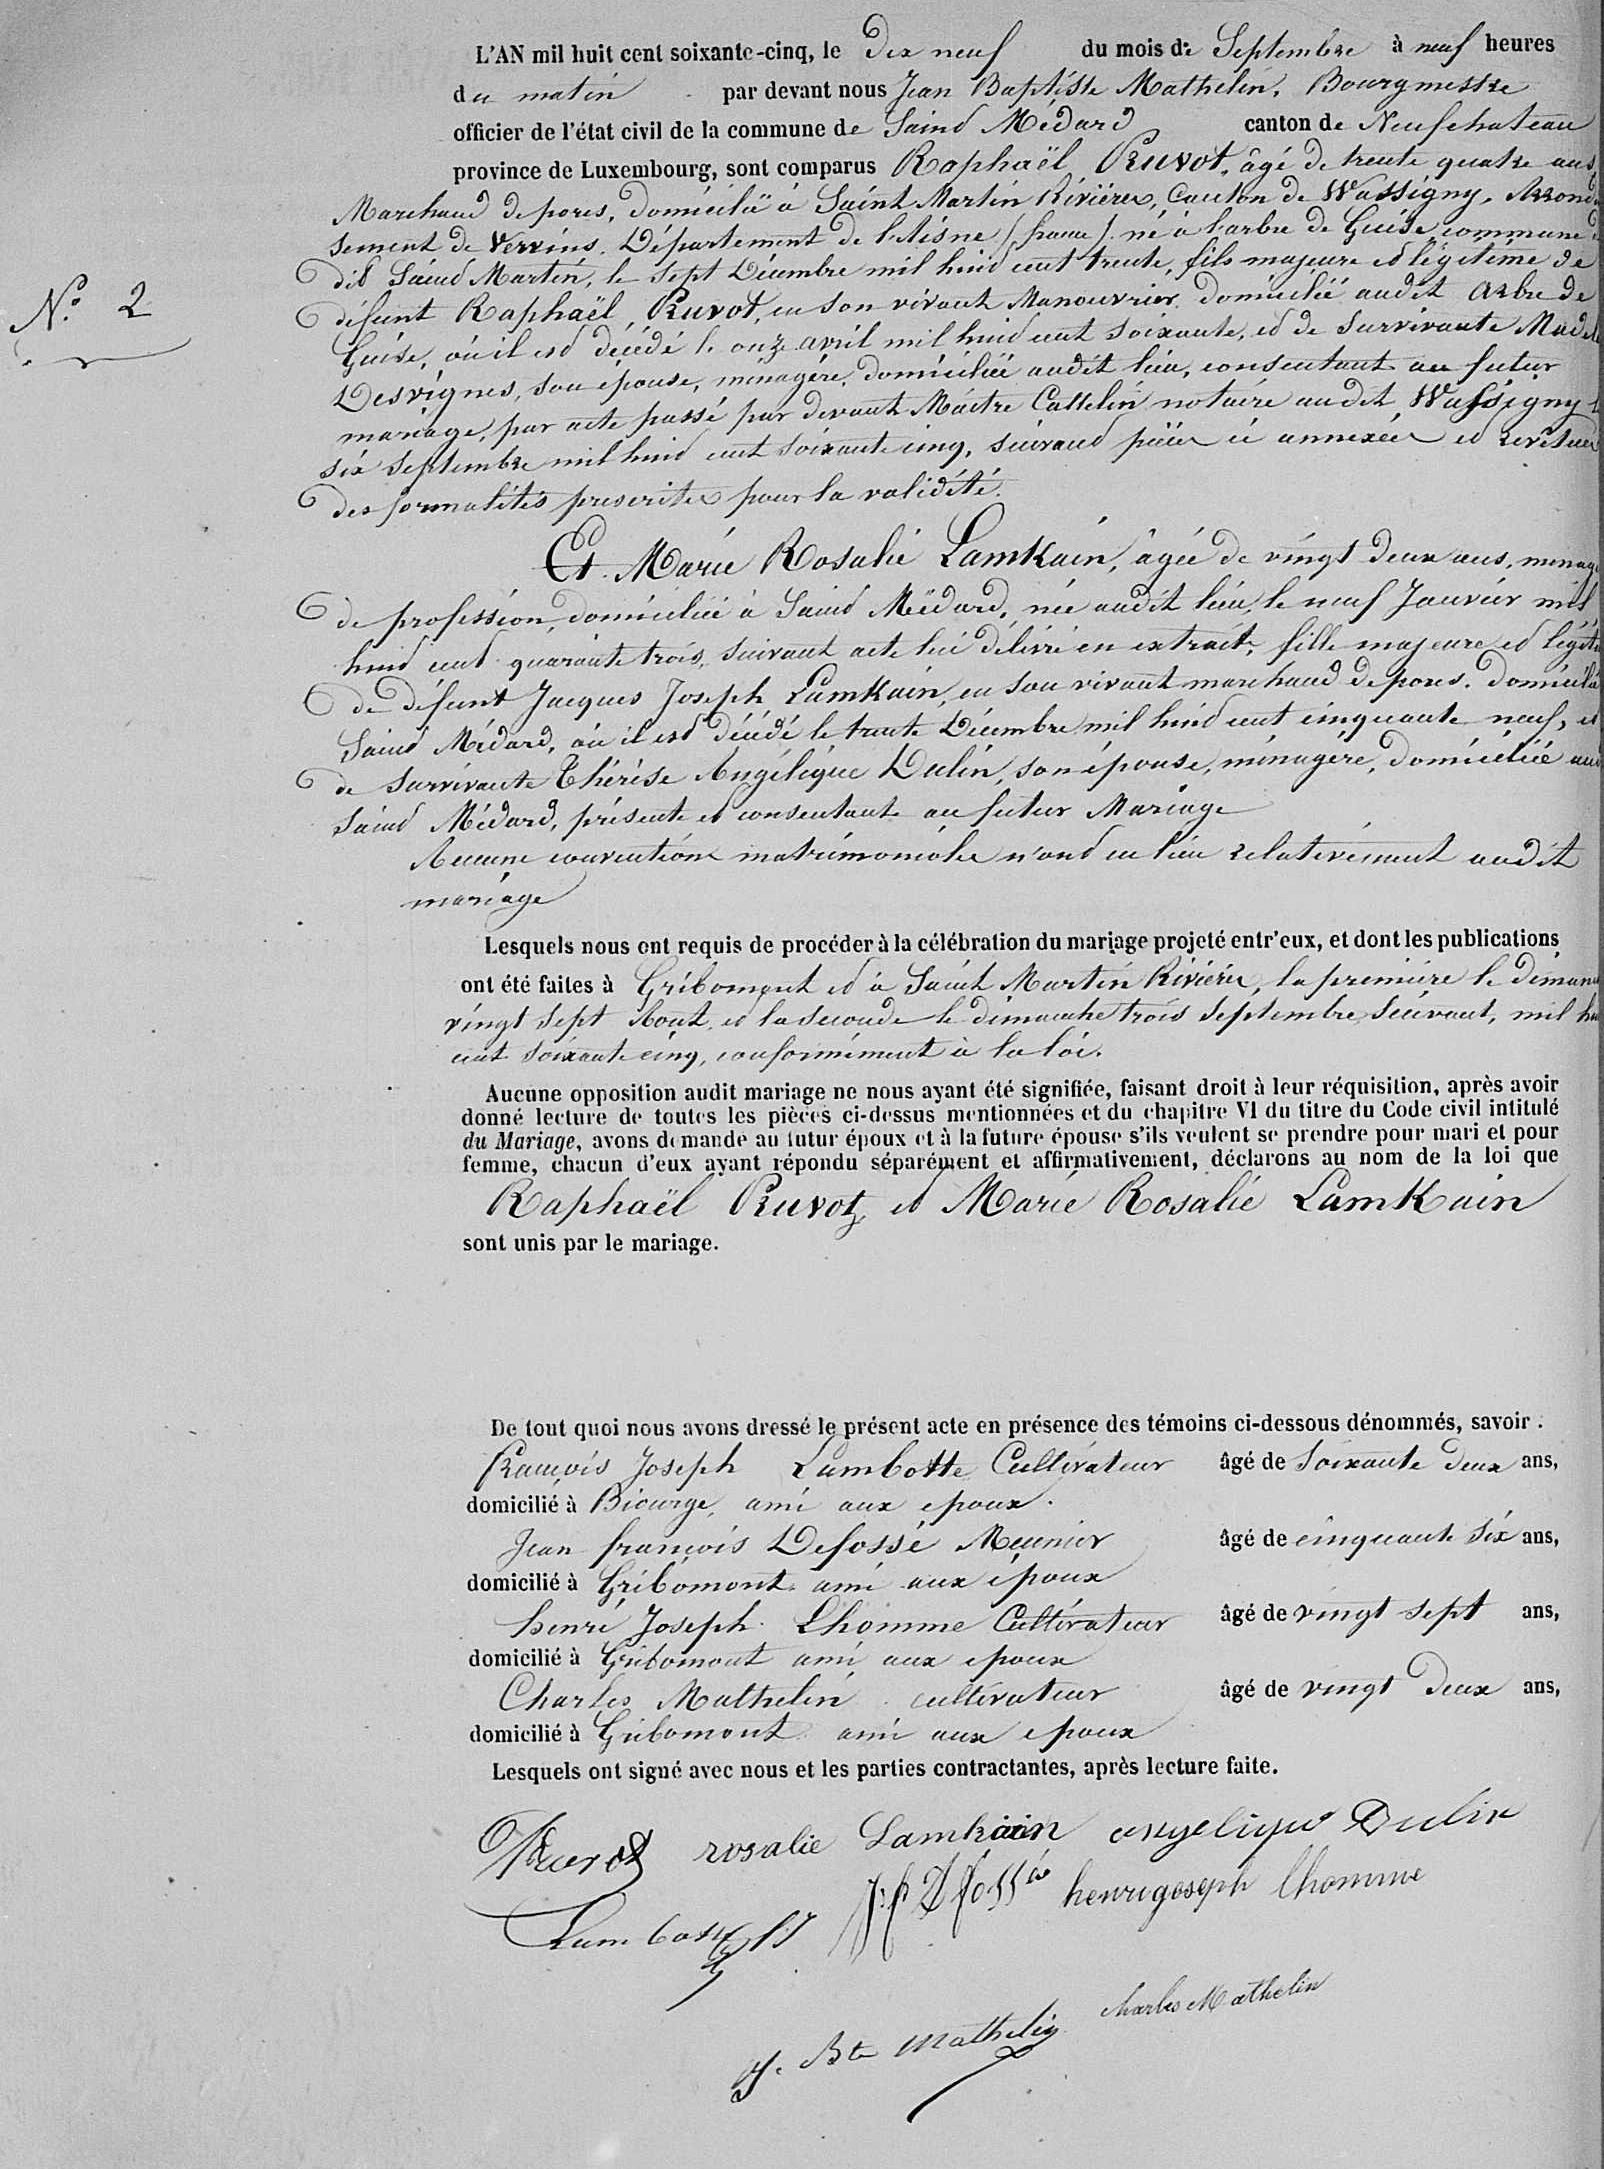 L'AN mil huit cent soixante-cinq, le dix neuf du mois de Septembre à neuf heures
du matin par devant nous Jean Baptiste Mathelin, Bourgmestre
officier de l'état civil de la commune de Saint Médard canton de Neufchateau
province de Luxembourg, sont comparus Raphaël Pruvot, âgé de trente quatre ans,
Marchand de porcs, domicilié à Saint Martin Rivière, Canton de Wassigny, Arrondis
sement de Vervins, Département de l'Aisne (france) né à l'arbre de Guise, commune
dit Saint Martin, le sept Décembre mil huit cent trente, fils majeure et légitime de
N.º 2
défunt Raphaël Pruvot, en son vivant Manouvrier, domicilié audit Arbre de
Guise, où il est décédé le onze avril mil huit cent soixante, et de survivante
Desvignes, son épouse, ménagère, domiciliée audit lieu, consentant au futur
mariage, par acte passé par devant Maître Cattelin notaire audit Wassigny
six septembre mil huit cent soixante cinq, suivant pièces ci annexées et revêtues
des formalités prescrites pour la validité.
Et Marie Rosalie Lamkain, âgée de vingt deux ans, ménag
de profession, domiciliée à Saint Médard, née audit lieu, le neuf Janvier mil
huit cent quarante trois, suivant acte lui délivré en extrait, fille majeure et légit
de défunt Jacques Joseph Lamkain, en son vivant marchand de porcs, domicilié
Saint Médard, où il est décédé le trente Décembre mil huit cent cinquante neuf, et
de survivante Thérèse Angélique Dulin, son épouse, ménagère, domiciliée aud
Saint Médard, présente et consentante au futur Mariage
Aucune conventions matrimoniales n'ont eu lieu relativement audit
mariage
Lesquels nous ont requis de procéder à la célébration du mariage projeté entr'eux, et dont les publications
ont été faites à Gribomont et à Saint Martin Rivière, la première le diman
vingt sept Aout, et la seconde le dimanche trois Septembre suivant, mil hu
cent soixante cinq, conformément à la loi.
Aucune opposition audit mariage ne nous ayant été signifiée, faisant droit à leur réquisition, après avoir
donné lecture de toutes les pièces ci-dessus mentionnées et du chapitre VI du titre du Code civil intitulé
du Mariage, avons demande au futur époux et à la future épouse s'ils veulent se prendre pour mari et pour
femme, chacun d'eux ayant répondu séparément et affirmativement, déclarons au nom de la loi que
Raphaël Pruvot, et Marie Rosalie Lamkain
sont unis par le mariage.
De tout quoi nous avons dressé le présent acte en présence des témoins ci-dessous dénommés, savoir :
François Joseph Lambotte Cultivateur âgé de soixante deux ans,
domicilié à Biourge, ami aux epoux.
Jean françois Defossé Meunier âgé de cinquante six ans,
domicilié à Gribomont ami aux époux
henri Joseph Lhomme Cultivateur âgé de vingt sept ans,
domicilié à Gribomont ami aux epoux
Charles Mathelin cultivateur âgé de vingt deux ans,
domicilié à Gribomont ami aux epoux
Lesquels ont signé avec nous et les parties contractantes, après lecture faite.
Pruvot rosalie Lamkain angelique Dulin
henri joseph lhomme
Charles Mathelin
J. Bte Mathelin